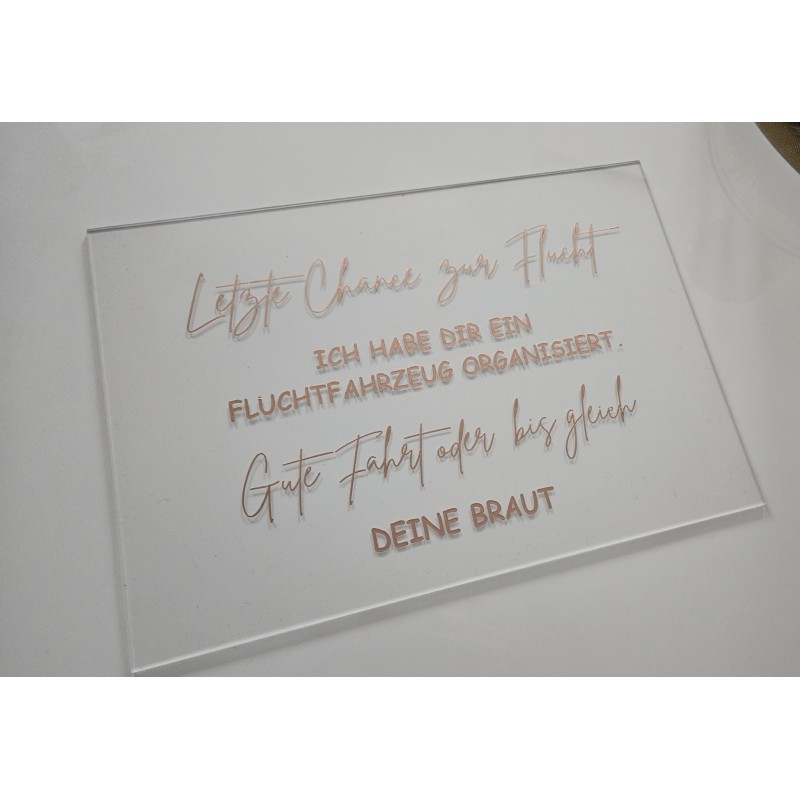 Letzte Chance zur Flucht
ICH HABE DIR EIN
FLUCHTFAHRZEUG ORGANISIERT.
Gute Fahrt oder bis gleich
DEINE BRAUT